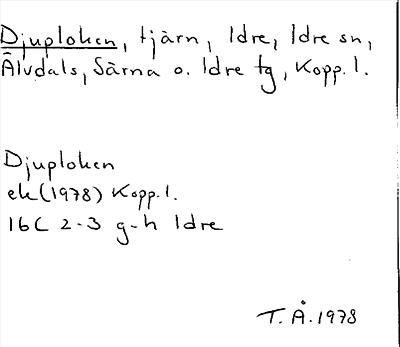 Djuploken, tjärn, Idre, Idre sn,
Älvdals, Särna o. Idre tg, Kopp. l.
Djuploken
ek (1978) Kopp. l.
16C 2-3 g-h Idre
T. Å. 1978